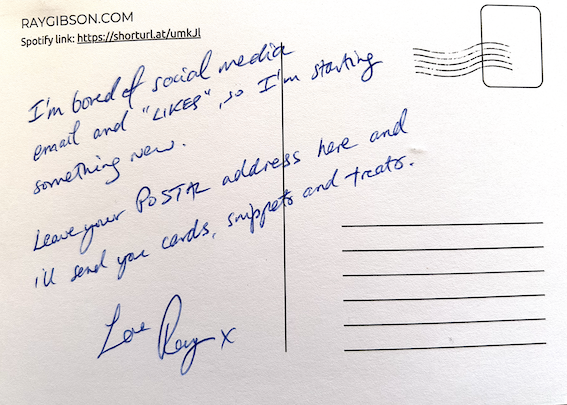 RAYGIBSON.COM
Spotify link: https://shorturl.at/umkJl
I'm bored of social media
email and "LIKES", so I'm starting
something new.
Leave your POSTAL address here and
i'll send you cards, snippets and treats.
Love Ray x